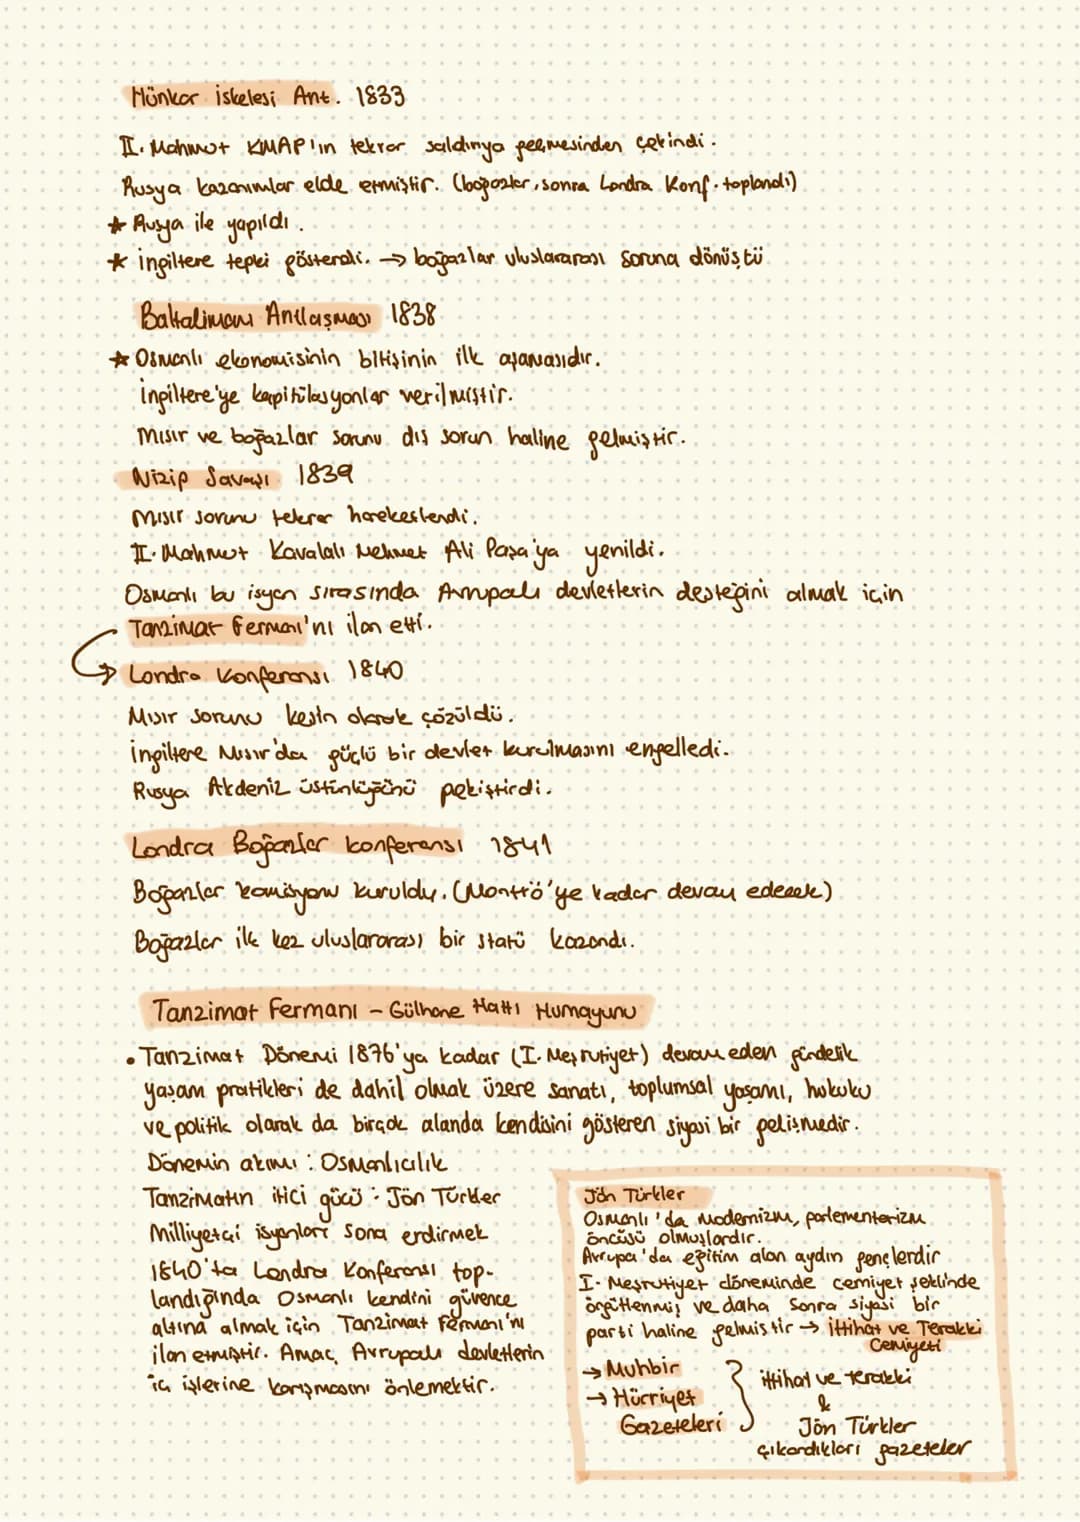 Hünkar İskelesi Ant. 1833
II. Mahmut KMAP'ın tekrar saldırıya geçmesinden çekindi.
Rusya kazanımlar elde etmiştir. (boğazlar, sonra Londra Konf. toplandı)
★ Rusya ile yapıldı.
★ İngiltere tepki gösterdi. → boğazlar uluslararası soruna dönüştü
Baltalimanı Antlaşması 1838
★ Osmanlı ekonomisinin bitişinin ilk aşamasıdır.
İngiltere'ye kapitülasyonlar verilmiştir.
Mısır ve boğazlar sorunu dış sorun haline gelmiştir.
Nizip Savaşı 1839
Mısır sorunu tekrar harekeslendi.
II. Mahmut Kavalalı Mehmet Ali Paşa'ya yenildi.
Osmanlı bu isyan sırasında Avrupalı devletlerin desteğini almak için
Tanzimat Fermanı'nı ilan etti.
→ Londra Konferansı 1840
Mısır sorunu kesin olarak çözüldü.
İngiltere Mısır'da güçlü bir devlet kurulmasını engelledi.
Rusya Akdeniz üstünlüğünü pekiştirdi.
Londra Boğazlar konferansı 1841
Boğazlar komisyonu kuruldu. (Montrö'ye kadar devam edecek)
Boğazlar ilk kez uluslararası bir statü kazandı.
Tanzimat Fermanı - Gülhane Hattı Humayunu
• Tanzimat Dönemi 1876'ya kadar (I. Meşrutiyet) devam eden gündelik
yaşam pratikleri de dahil olmak üzere sanatı, toplumsal yaşamı, hukuku
ve politik olarak da birçok alanda kendisini gösteren siyasi bir gelişmedir.
Dönemin akımı : Osmanlıcılık
Tanzimatın itici gücü : Jön Türkler
Milliyetçi isyanları sona erdirmek
1840'ta Londra Konferansı top-
landığında Osmanlı kendini güvence
altına almak için Tanzimat Fermanı'nı
ilan etmiştir. Amaç, Avrupalı devletlerin
iç işlerine karışmasını önlemektir.
Jön Türkler
Osmanlı'da modernizm, parlementarizm
öncüsü olmuşlardır.
Avrupa'da eğitim alan aydın gençlerdir
I. Meşrutiyet döneminde cemiyet şeklinde
örgütlenmiş ve daha sonra siyasi bir
parti haline gelmiştir → İttihat ve Terakki
Cemiyeti
→ Muhbir
→ Hürriyet
Gazeteleri
ittihat ve terakki
&
Jön Türkler
çıkardıkları gazeteler